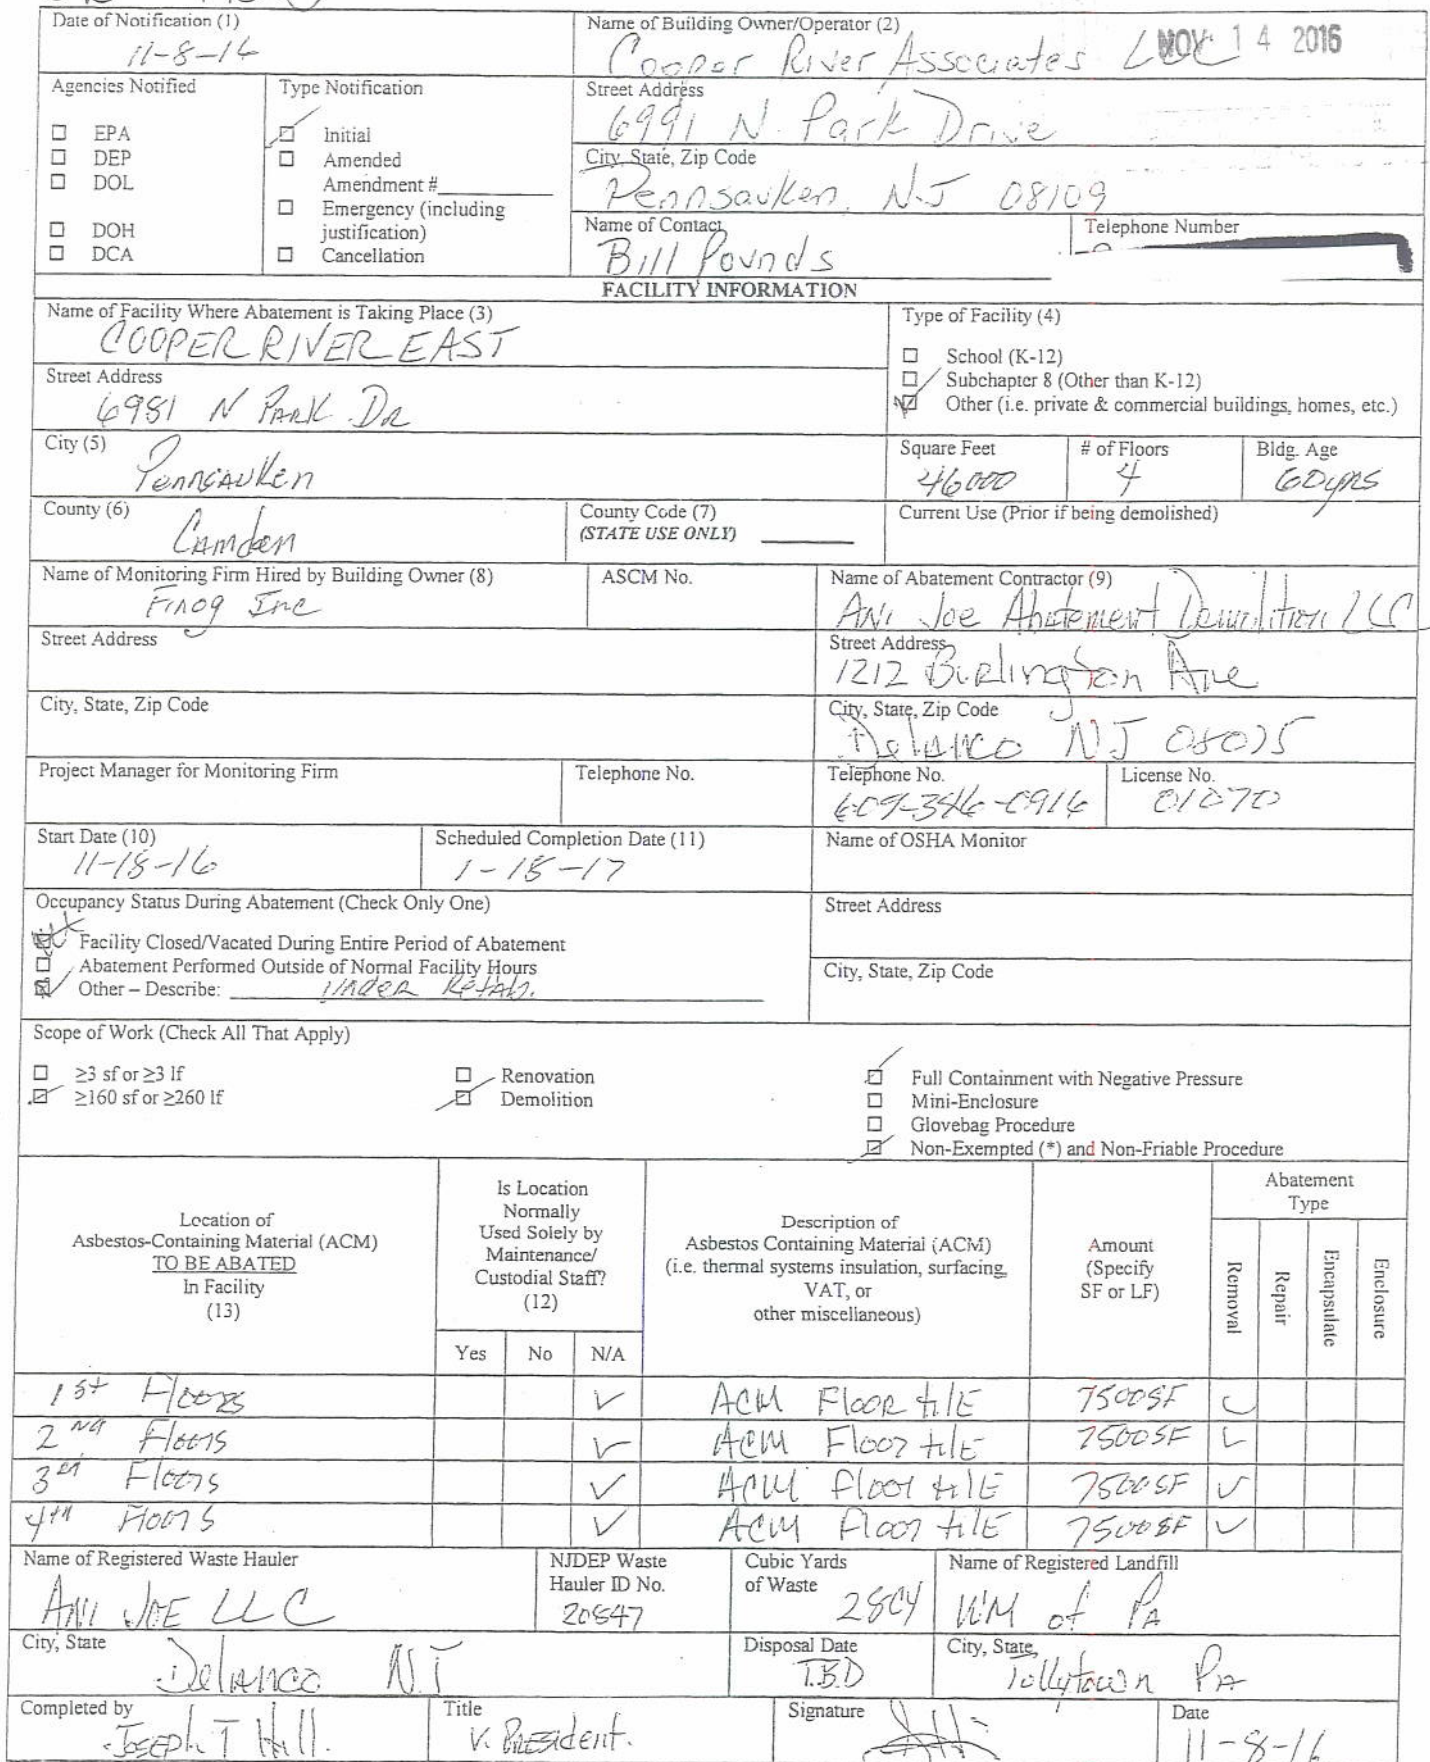 Date of Notification (1)
11-8-16
Name of Building Owner/Operator (2)
Cooper River Associates LLC
NOV 14 2016
Agencies Notified
☐ EPA
☐ DEP
☐ DOL
☐ DOH
☐ DCA
Type Notification
☑ Initial
☐ Amended
Amendment #
☐ Emergency (including
justification)
☐ Cancellation
Street Address
6991 N. Park Drive
City, State, Zip Code
Pennsauken, NJ 08109
Name of Contact
Bill Pounds
Telephone Number
FACILITY INFORMATION
Name of Facility Where Abatement is Taking Place (3)
COOPER RIVER EAST
Type of Facility (4)
☐ School (K-12)
☐ Subchapter 8 (Other than K-12)
☑ Other (i.e. private & commercial buildings, homes, etc.)
Street Address
6981 N PARK DR
City (5)
Pennsauken
Square Feet
46000
# of Floors
4
Bldg. Age
60yrs
County (6)
Camden
County Code (7)
(STATE USE ONLY)
Current Use (Prior if being demolished)
Name of Monitoring Firm Hired by Building Owner (8)
Finog Inc
ASCM No.
Name of Abatement Contractor (9)
Ani Joe Abatement Demolition LLC
Street Address
Street Address
1212 Burlington Ave
City, State, Zip Code
City, State, Zip Code
Delanco NJ 08075
Project Manager for Monitoring Firm
Telephone No.
Telephone No.
609-346-0916
License No.
01070
Start Date (10)
11-18-16
Scheduled Completion Date (11)
1-18-17
Name of OSHA Monitor
Occupancy Status During Abatement (Check Only One)
☑ Facility Closed/Vacated During Entire Period of Abatement
☐ Abatement Performed Outside of Normal Facility Hours
☑ Other – Describe: UNDER Rehab.
Street Address
City, State, Zip Code
Scope of Work (Check All That Apply)
☐ ≥3 sf or ≥3 lf
☑ ≥160 sf or ≥260 lf
☐ Renovation
☑ Demolition
☑ Full Containment with Negative Pressure
☐ Mini-Enclosure
☐ Glovebag Procedure
☑ Non-Exempted (*) and Non-Friable Procedure
Location of
Asbestos-Containing Material (ACM)
TO BE ABATED
In Facility
(13)
Is Location
Normally
Used Solely by
Maintenance/
Custodial Staff?
(12)
Yes No N/A
Description of
Asbestos Containing Material (ACM)
(i.e. thermal systems insulation, surfacing,
VAT, or
other miscellaneous)
Amount
(Specify
SF or LF)
Abatement
Type
Removal
Repair
Encapsulate
Enclosure
1st Floors ✓ ACM Floor tile 7500SF ✓
2nd Floors ✓ ACM Floor tile 7500SF ✓
3rd Floors ✓ ACM Floor tile 7500SF ✓
4th Floors ✓ ACM Floor tile 7500SF ✓
Name of Registered Waste Hauler
ANI JOE LLC
NJDEP Waste
Hauler ID No.
20847
Cubic Yards
of Waste
28CY
Name of Registered Landfill
WM of PA
City, State
Delanco NJ
Disposal Date
T.B.D
City, State,
Tullytown PA
Completed by
Joseph T Hill.
Title
V. President.
Signature
Date
11-8-16